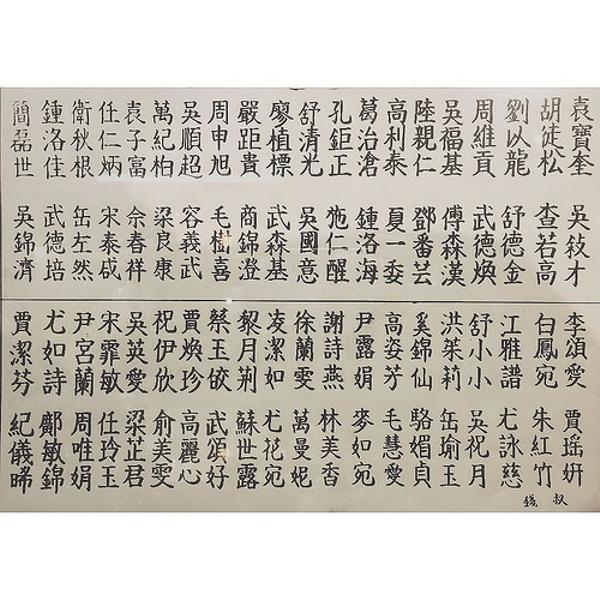 袁寶奎
胡徒松
劉以龍
周維貢
吳福基
陸親仁
高利泰
葛治滄
孔鉅正
舒清光
廖植標
嚴距貴
周申旭
吳順超
萬紀柏
袁子富
任仁炳
衛秋根
鍾洛佳
簡磊世
吳敍才
查若高
舒德金
武德煥
傅森漢
鄧番芸
夏一委
鍾洛海
施仁醒
吳國意
武森基
商錦澄
毛樹喜
容義武
梁良康
佘春祥
宋泰成
岳左然
武德培
吳錦濟
李頌愛
白鳳宛
江雅譜
舒小小
洪茱莉
奚錦仙
高姿芳
尹露娟
謝詩燕
徐蘭雯
凌潔如
黎月荊
蔡玉皎
賈煥珍
祝伊欣
吳英愛
宋霏敏
尹宮蘭
尤如詩
賈潔芬
賈瑤妍
朱紅竹
尤詠慈
吳祝月
岳瑜玉
駱媚貞
毛慧愛
麥如宛
林美香
萬曼妮
尤花宛
蘇世露
武頌好
高麗心
俞美雯
梁芷君
任玲玉
周唯娟
鄺敏錦
紀儀晞
叔